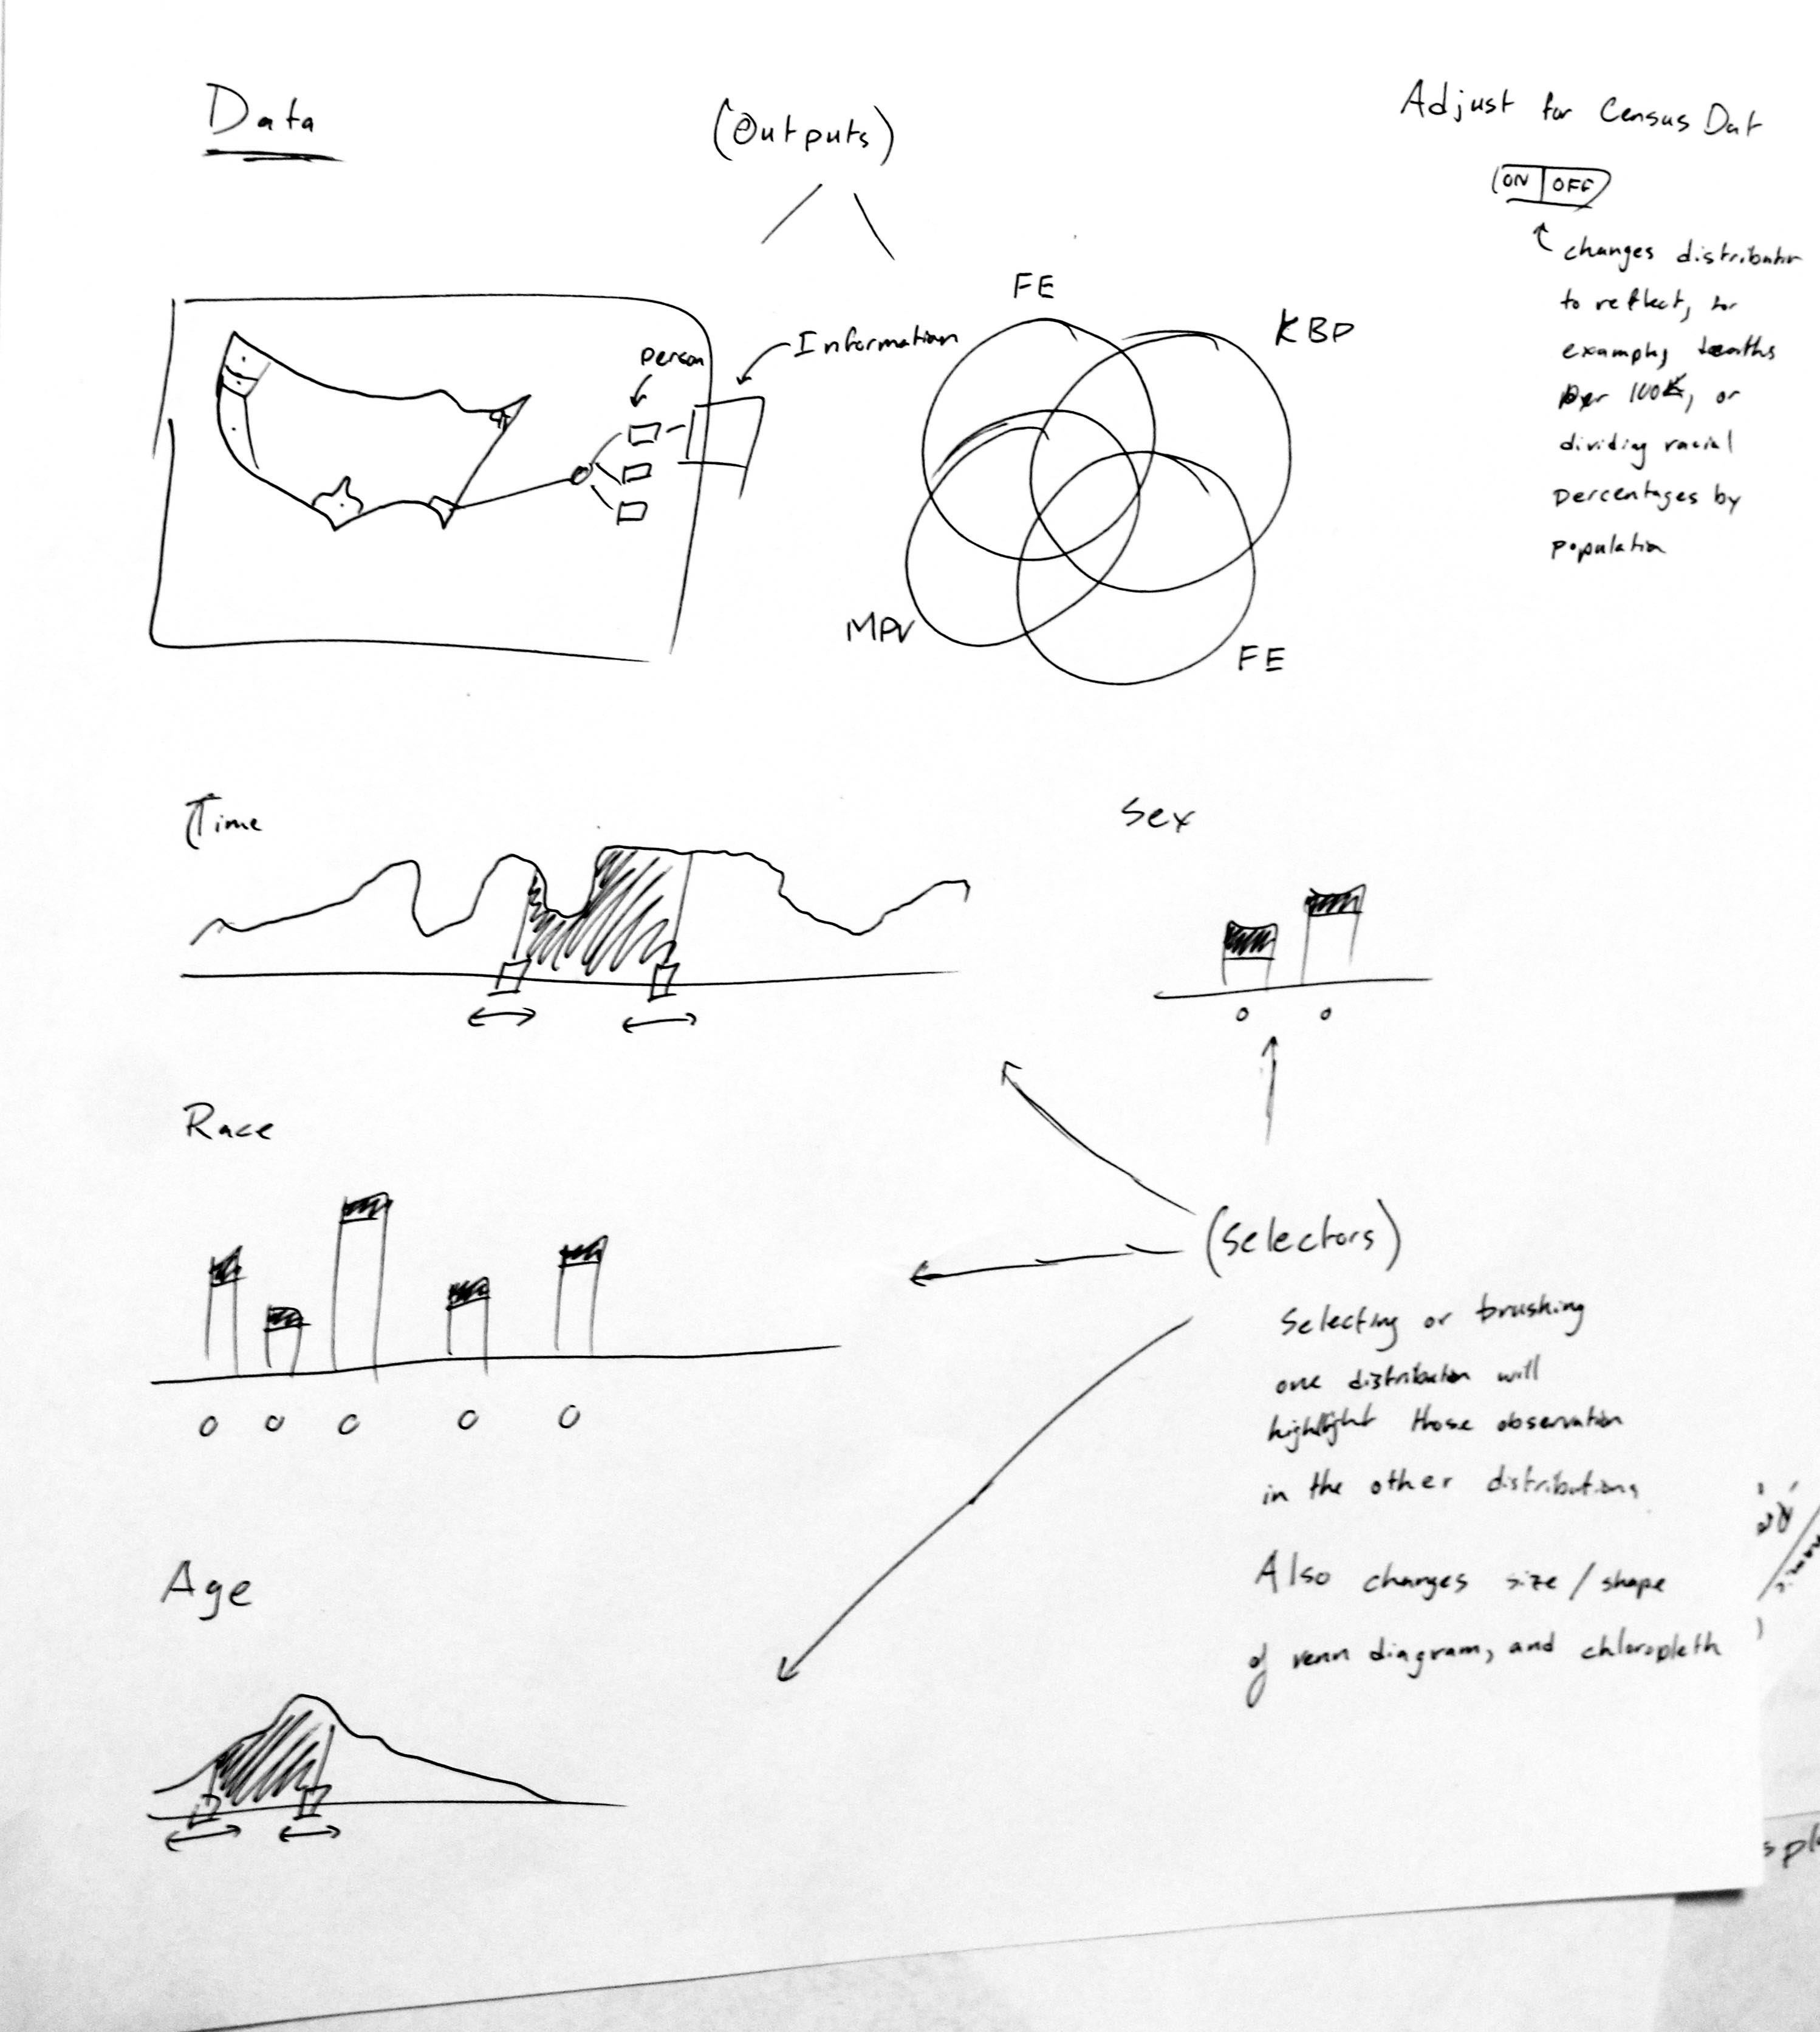 Data
(Outputs)
Adjust for Census Dat
ON OFF
changes distribution
to reflect, for
example, deaths
per 100K, or
dividing racial
percentages by
population
person
Information
FE
KBP
MPV
FE
Time
Sex
Race
(Selectors)
Selecting or brushing
one distribution will
highlight those observation
in the other distributions
Also changes size / shape
of venn diagram, and chloropleth
Age